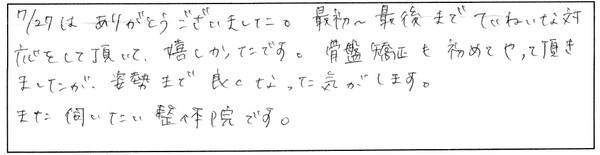 7/27は ありがとうございました。 最初〜最後まで ていねいな対
応をして頂いて、嬉しかったです。骨盤矯正も 初めてやって頂き
ましたが、姿勢まで 良くなった気がします。
また 伺いたい 整体院です。